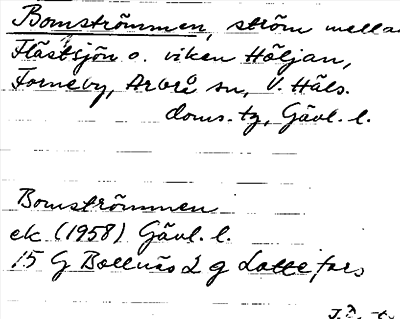 Bomströmmen, ström mella
Flästsjön o. viken Höljan,
Forneby, Arbrå sn, V. Häls.
doms. tg, Gävl. l.
Bomströmmen
ek (1958) Gävl. l.
15 G Bollnäs 2 g Lottefors